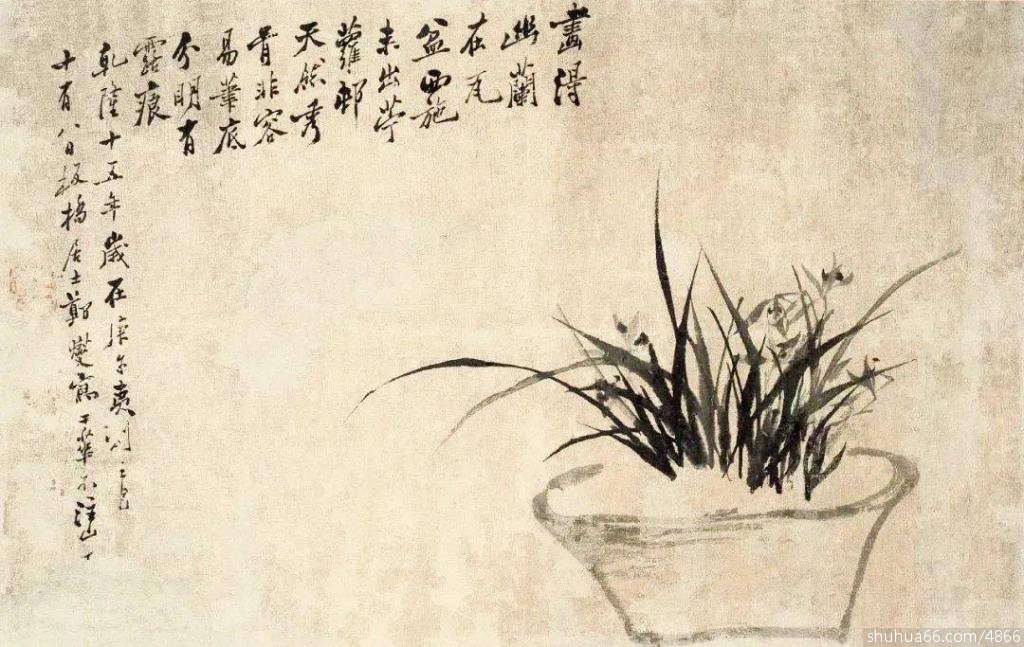 畫得
幽蘭
在瓦
盆西施
未出苧
蘿邨
天然秀
骨非容
易筆底
分明有
露痕
乾隆十五年歲在庚午夷則之
十有八日板橋居士鄭燮寫于
shuhua66.com/4866